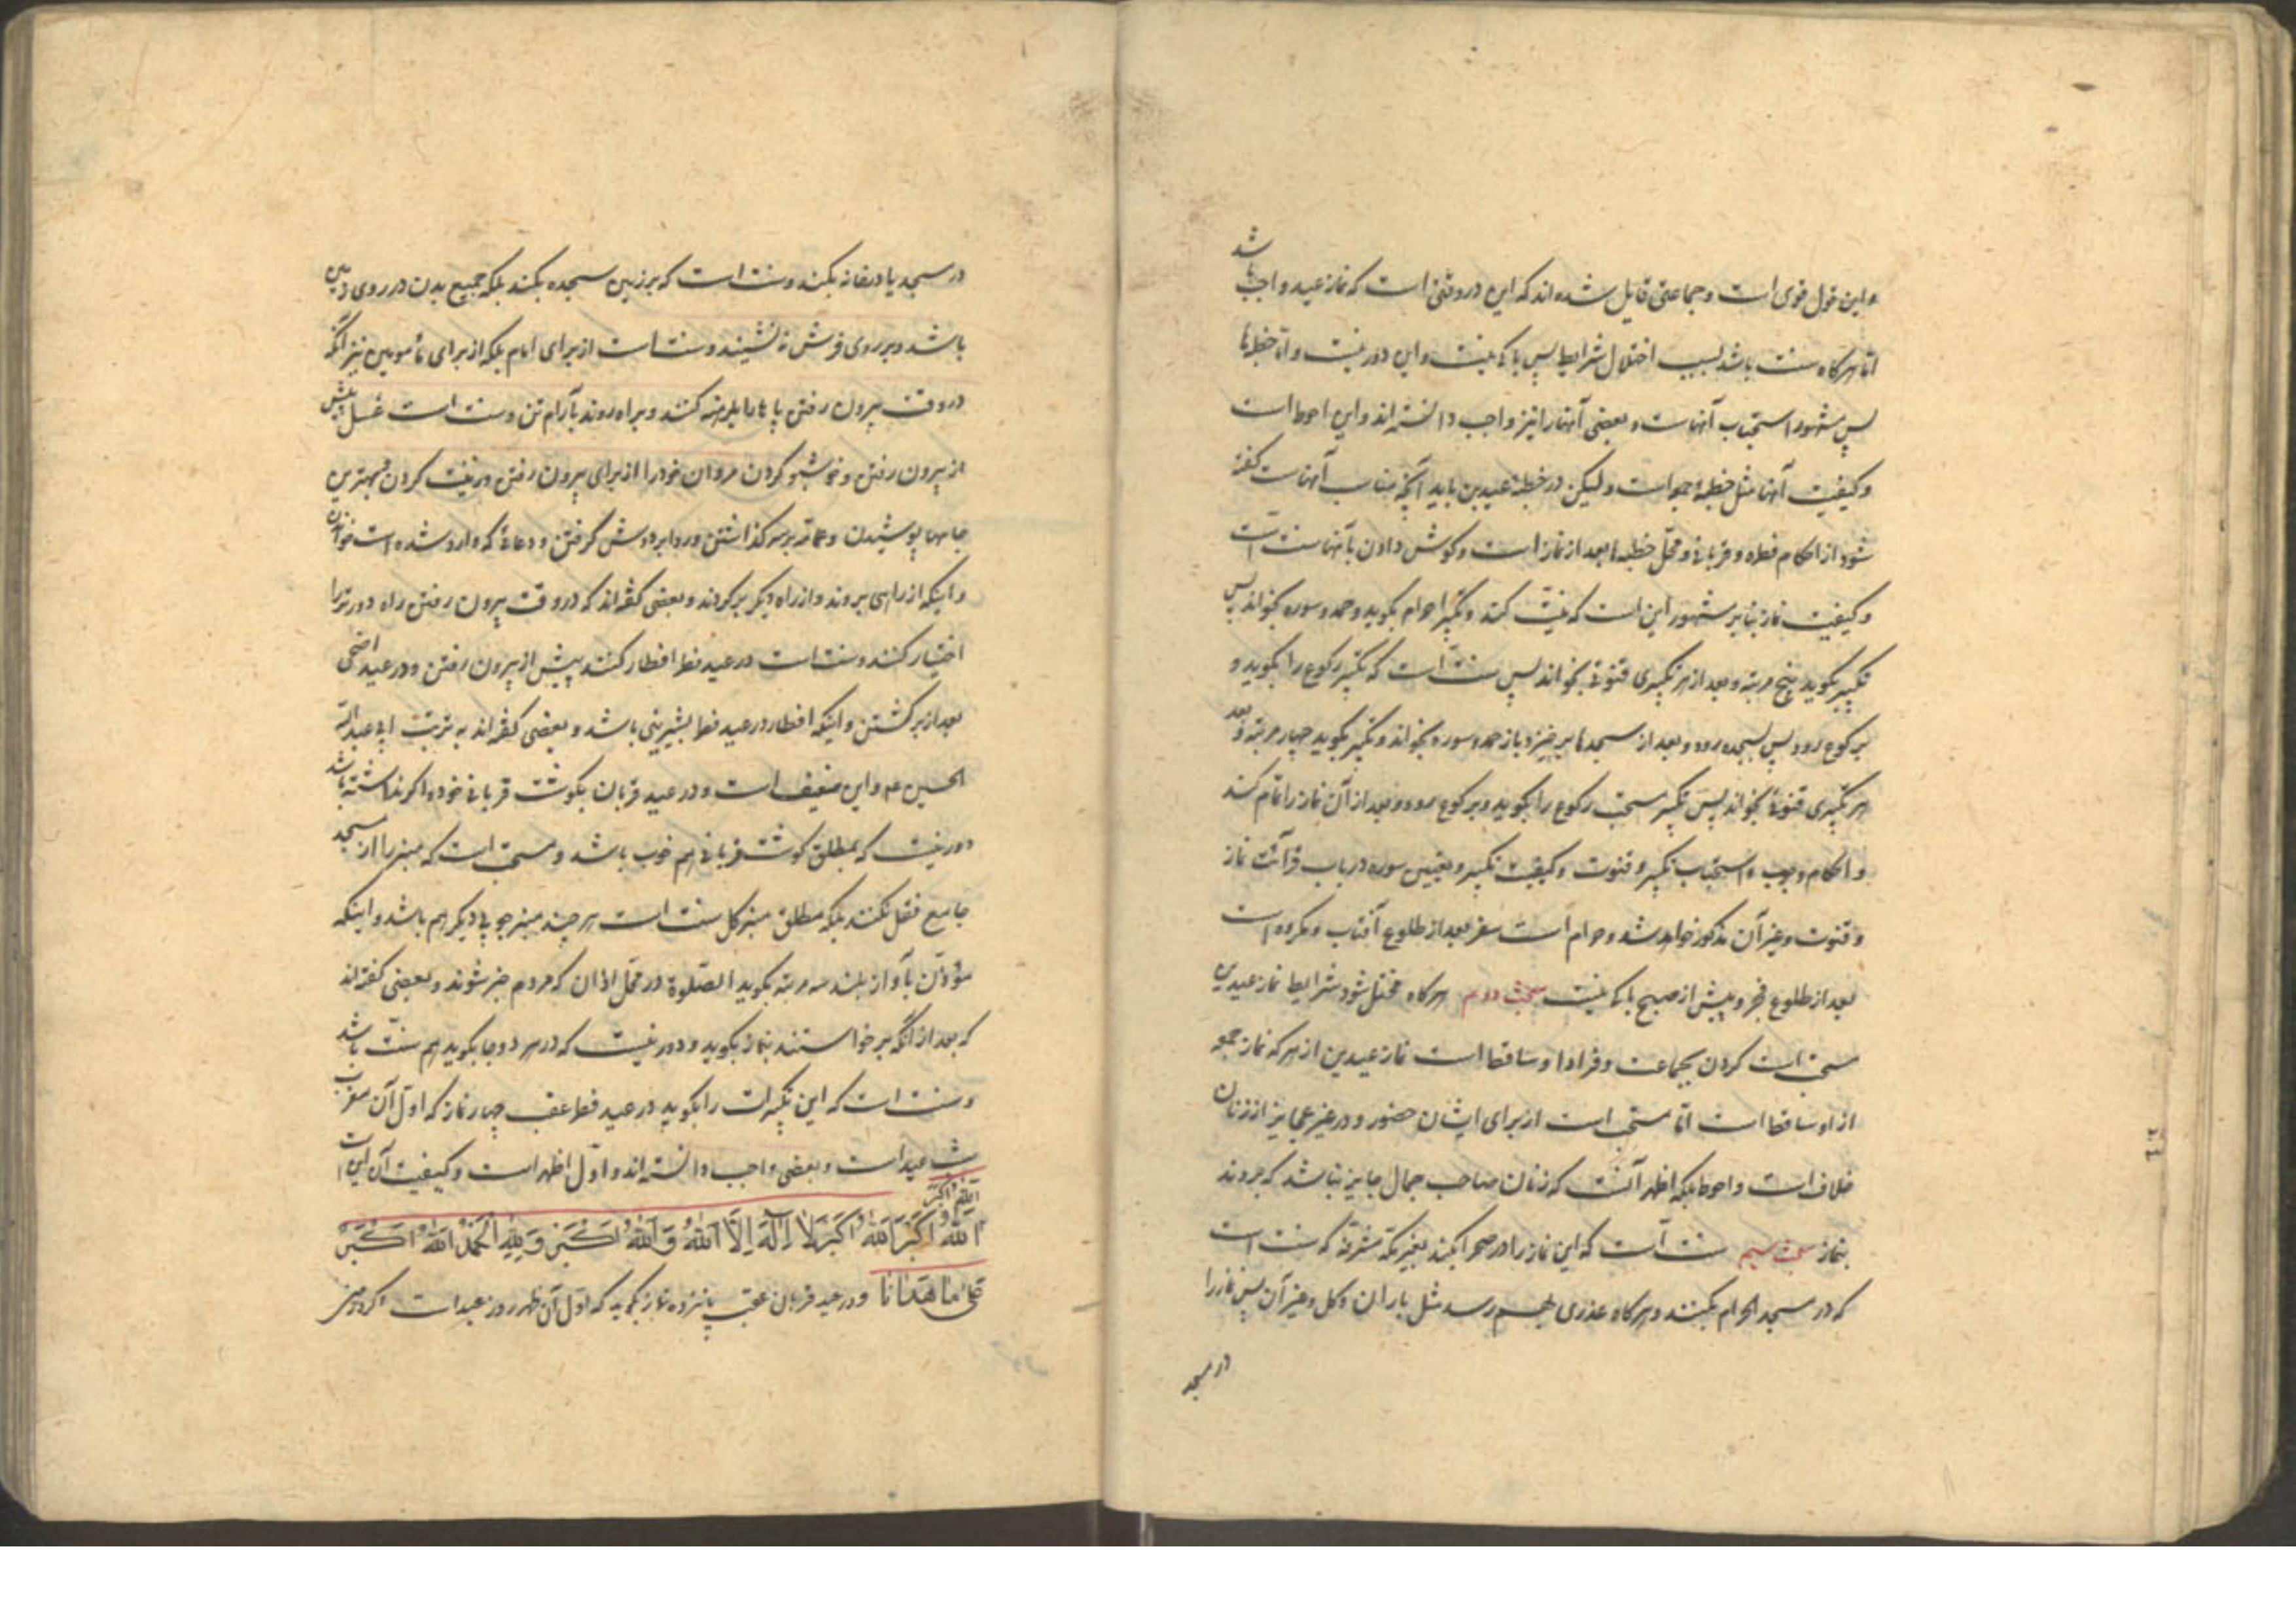 و این قول قوی است و جماعتی قایل شده‌اند که این در وقتی است که نماز عید واجب باشد
اما هرگاه سنت باشد بسبب اختلال شرایط پس باکی نیست و این دور نیست و اما خطبها
پس مشهور استحباب آنهاست و بعضی آنها را نیز واجب دانسته‌اند و این احوط است
و کیفیت آنها مثل خطبهٔ جمعه است و لیکن در خطبهٔ عیدین باید آنچه مناسب آنهاست گفته
شود از احکام فطره و قربانی و محل خطبها بعد از نماز است و گوش دادن بآنها سنت است
و کیفیت نماز بنا بر مشهور این است که نیت کند و تکبیر احرام بگوید و حمد و سوره بخواند پس
تکبیر بگوید پنج مرتبه و بعد از هر تکبیری قنوتی بخواند پس سنت است که تکبیر رکوع را بگوید و
برکوع رود پس بسجده رود و بعد از سجدها برخیزد باز حمد و سوره بخواند و تکبیر بگوید چهار مرتبه و بعد
هر تکبیری قنوتی بخواند پس تکبیر مستحب رکوع را بگوید و برکوع رود و بعد از آن نماز را تمام کند
و احکام وجوب و استحباب تکبیر و قنوت و کیفیت تکبیر و تعیین سوره در باب قرائت نماز
و قنوت و غیر آن مذکور خواهد شد و حرام است سفر بعد از طلوع آفتاب و مکروه است
بعد از طلوع فجر و پیش از صبح باکی نیست مبحث دوم هرگاه مختل شود شرایط نماز عیدین
مستحب است کردن بجماعت و فرادا و ساقط است نماز عیدین از هر که نماز جمعه
از او ساقط است اما مستحب است از برای ایشان حضور و در غیر عجایز از زنان
خلاف است و احوط بلکه اظهر آنست که زنان صاحب جمال جایز نباشد که بروند
بنماز مبحث سیم سنت است که این نماز را در صحرا بکنند بغیر مکه مشرفه که سنت است
که در مسجد الحرام بکنند و هرگاه عذری بهم رسد مثل باران و گل و غیر آن پس نماز را
در مسجد
در مسجد یا در خانه بکنند و سنت است که بر زمین سجده بکنند بلکه جمیع بدن در روی زمین
باشد و بر روی فرش نه نشینند و سنت است از برای امام بلکه از برای مأمومین نیز آنکه
در وقت بیرون رفتن پاها را برهنه کنند و براه روند بآرام تن و سنت است غسل پیش
از بیرون رفتن و خوشبو کردن مردان خود را از برای بیرون رفتن و زینت کردن و بهترین
جامها پوشیدن و عمامه بر سر گذاشتن و ردا بر دوش گرفتن و دعائی که وارد شده است خواندن
و اینکه از راهی بروند و از راه دیگر برگردند و بعضی گفته‌اند که در وقت بیرون رفتن راه دورتر را
اختیار کنند و سنت است در عید فطر افطار کنند پیش از بیرون رفتن و در عید اضحی
بعد از برگشتن و اینکه افطار در عید فطر بشیرینی باشد و بعضی گفته‌اند به تربت ابی عبدالله
الحسین عم و این ضعیف است و در عید قربان بگوشت قربانی خود و اگر نداشته باشد
دور نیست که بمطلق گوشت قربانی هم خوب باشد و مستحب است که منبر را از مسجد
جامع نقل نکنند بلکه مطلق منبر گل سنت است هر چند منبر چوبی دیگر هم باشد و اینکه
مؤذن بآواز بلند سه مرتبه بگوید الصّلوة در محل اذان که مردم خبر شوند و بعضی گفته‌اند
که بعد از آنکه برخواستند بنماز بگوید و دور نیست که در هر دو جا بگوید هم سنّت باشد
و سنت است که این تکبیرات را بگوید در عید فطر عقب چهار نماز که اول آن مغرب
شب عید است و بعضی واجب دانسته‌اند و اوّل اظهر است و کیفیت آن این است
اللّٰه اکبر
اَللّٰهُ اَکْبَرُ اَللّٰهُ اَکْبَرُ لَا اِلٰهَ اِلَّا اللّٰهُ وَ اللّٰهُ اَکْبَرُ وَ لِلّٰهِ الْحَمْدُ اَللّٰهُ اَکْبَرُ
عَلیٰ مَا هَدَانَا و در عید قربان عقب پانزده نماز بگوید که اول آن ظهر روز عید است اگر در